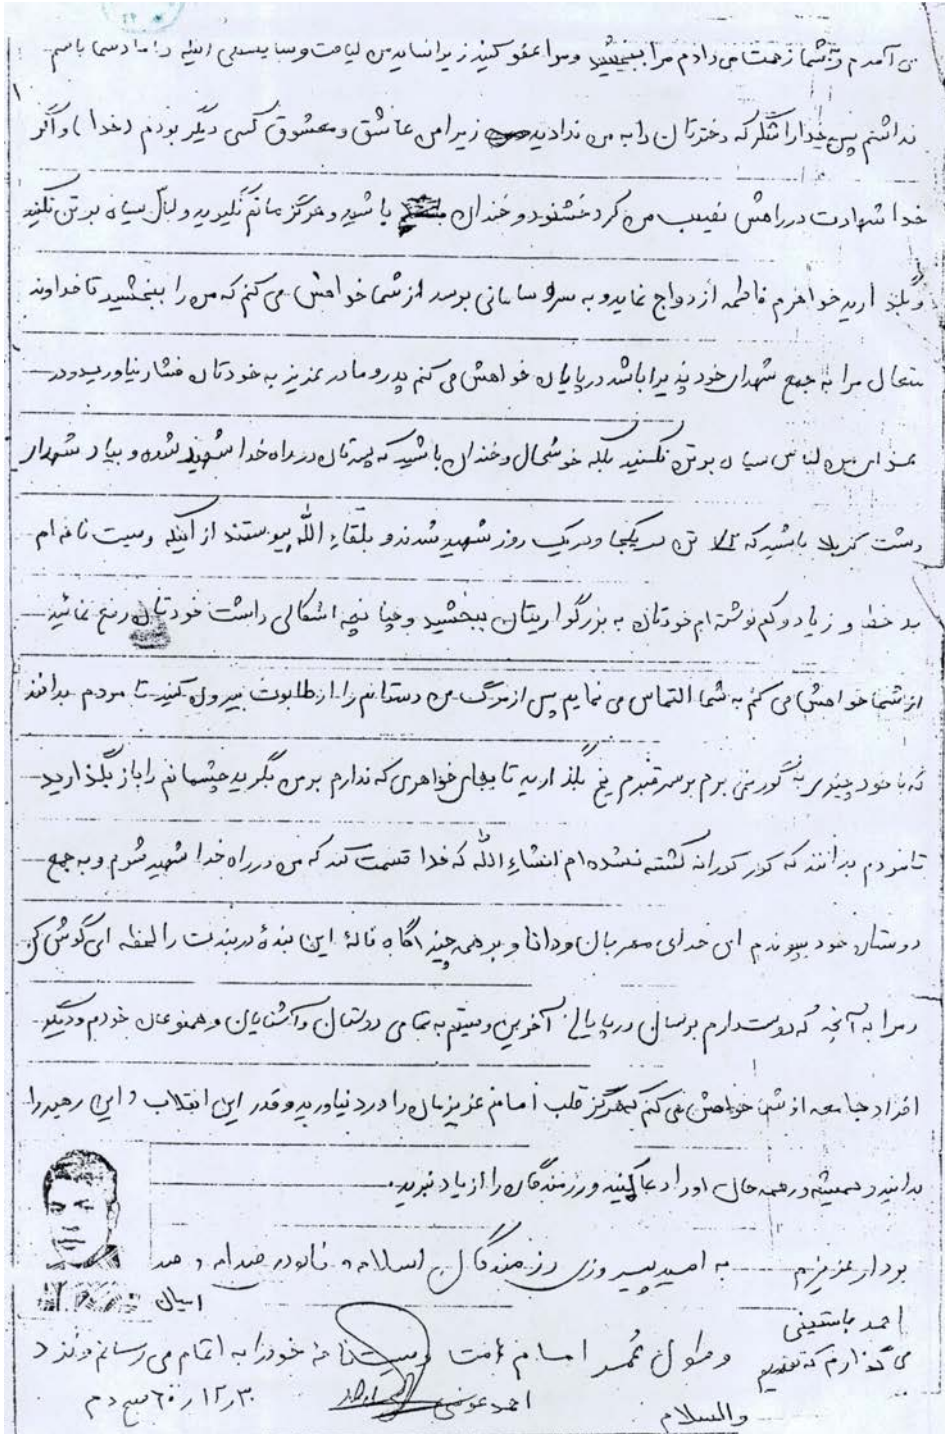 آمدم و به شما زحمت می دادم مرا ببخشید و مرا عفو کنید زیرا شاید من لیاقت و شایستگی اینکه داماد شما باشم
نداشتم پس خدا را شکر که دخترتان را به من ندادید زیرا من عاشق و معشوق کسی دیگر بودم (خدا) و اگر
خدا شهادت در راهش نصیب من کرد خشنود و خندان باشید و هرگز ماتم نگیرید و لباس سیاه بر تن نکنید
و بگذارید خواهرم فاطمه ازدواج نماید و به سر و سامانی برسد از شما خواهش می کنم که من را ببخشید تا خداوند
متعال مرا به جمع شهدای خود پذیرا باشد در پایان خواهش می کنم پدر و مادر عزیز به خودتان فشار نیاورید و در
عزای من لباس سیاه بر تن نکنید بلکه خوشحال و خندان باشید که پسرتان در راه خدا شهید شده و بیاد شهدای
دشت کربلا باشید که ۷۲ تن در یکجا و در یک روز شهید شدند و بلقاء الله پیوستند از اینکه وصیت نامه ام
بد خط و زیاد و کم نوشته ام خودتان به بزرگواریتان ببخشید و چنانچه اشکالی داشت خودتان رفع نمائید
از شما خواهش می کنم به شما التماس می نمایم پس از مرگ من دستانم را از طابوت بیرون کنید تا مردم بدانند
که با خود چیزی به گور نمی برم بر سر قبرم یخ بگذارید تا بجای خواهری که ندارم بر من بگرید چشمانم را باز بگذارید
تا مردم بدانند که کورکورانه کشته نشده ام انشاء الله که خدا قسمت کند که من در راه خدا شهید شوم و به جمع
دوستان خود بپیوندم ای خدای مهربان و دانا و بر همه چیز آگاه نالهٔ این بندهٔ دربندت را لحظه ای گوش کن
و مرا به آنچه که دوست دارم برسان در پایان آخرین وصیتم به تمامی دوستان و آشنایان و همنوعان خودم و دیگر
افراد جامعه از شما خواهش می کنم که هرگز قلب امام عزیزمان را درد نیاورید و قدر این انقلاب و این رهبر را
بدانید و همیشه در همه حال او را دعا کنید و رزمندگان را از یاد نبرید.
برادر عزیزم به امید پیروزی رزمندگان اسلام و نابودی صدام و صد
امیان
احمد باستینی
می گذارم که تقدیم و طول عمر امام امت وصیتنامهٔ خود را به اتمام می رسانم و نزد
احمد عوضی ۶۰/۱۲/۳۰ صبح دم
والسلام